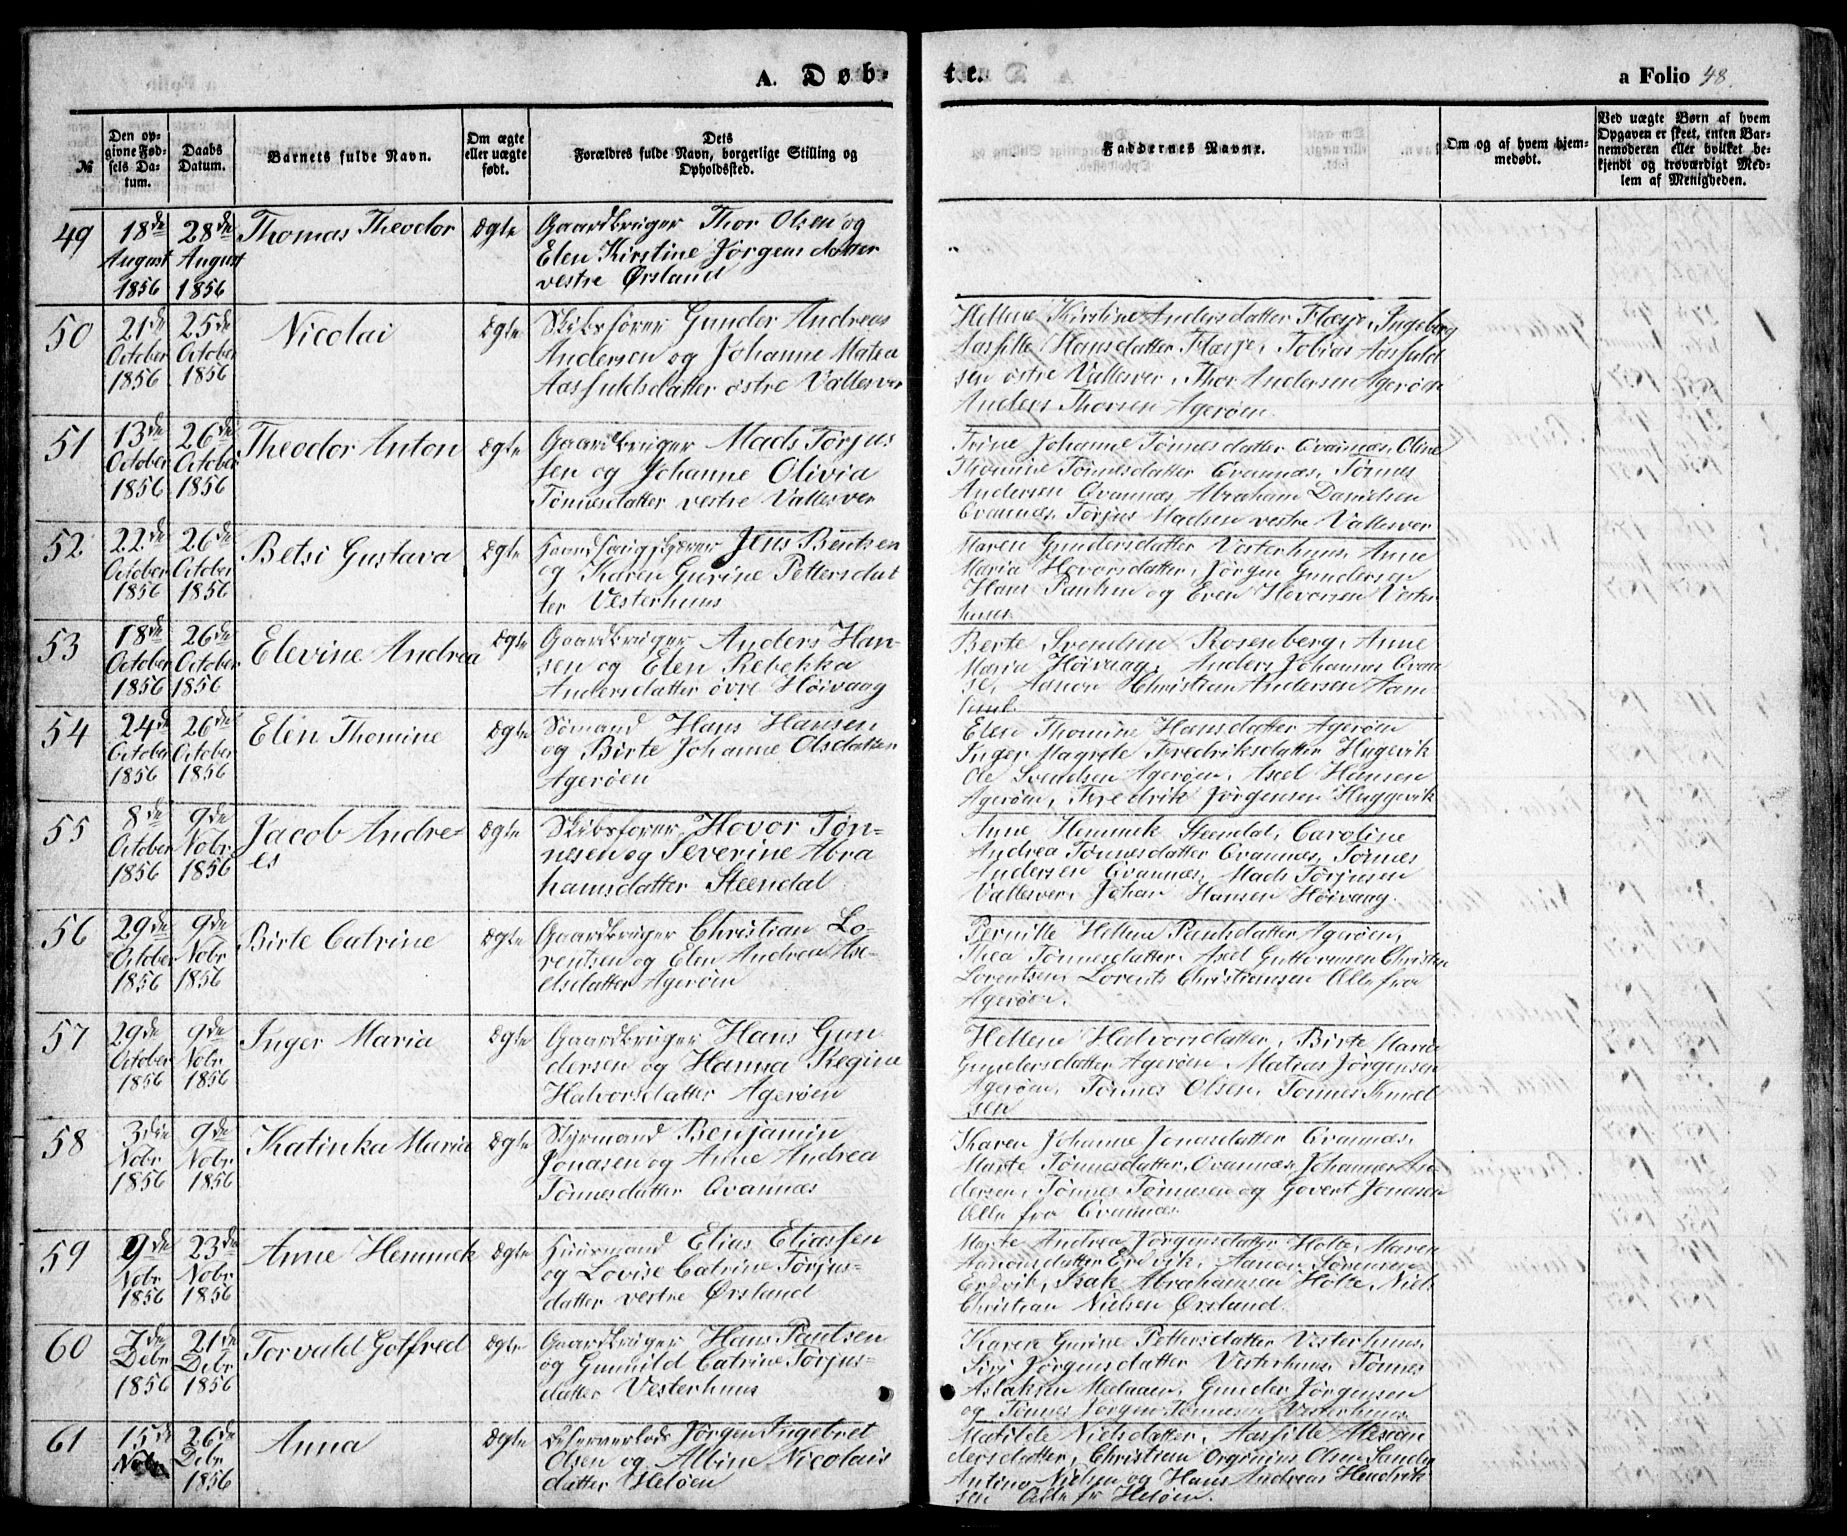 A. Døb-
te.
a Folio 48.
№
Den op-
givne Fød-
sels Da-
tum.
Daabs
Datum.
Barnets fulde Navn.
Om ægte
eller uægte
født.
Dets
Forældres fulde Navn, borgerlige Stilling og
Opholdssted.
Faddernes Navne.
Om og af hvem hjem-
medøbt.
Ved uægte Børn af hvem
Opgaven er skeet, enten Bar-
nemoderen eller hvilket be-
kjendt og troværdigt Med-
lem af Menigheden.
49 18de August 1856 28de August 1856 Thomas Theodor Ægte
Gaardbruger Thor Olsen og
Elen Kirstine Jørgensdatter
vestre Ørsland
50 21de October 1856 25de October 1856 Nicolai Ægte
Skibsfører Gunder Andreas
Andersen og Johanne Matea
Aasfuldsdatter østre Vallesver
Hellene Kirstine Andersdatter Flæsje, Ingeborg
Aasfille Hansdatter Flæsje, Tobias Aasfuld
sen østre Vallesver, Thor Andersen Agerøen
Anders Thorsen Agerøen
51 13de October 1856 26de October 1856 Theodor Anton Ægte
Gaardbruger Mads Tørjus
sen og Johanne Olivia
Tønnesdatter vestre Vallesver
Trine Johanne Tønnesdatter Qvannæs, Oline
Thomine Tønnesdatter Qvannæs, Tønnes
Andersen Qvannæs, Abraham Danielsen
Qvannæs, Tørjus Madsen vestre Vallesver
52 22de October 1856 26de October 1856 Betsi Gustava Ægte
Jens Bentsen
og Karen Gurine Pettersdat
ter Vesterhuus
Maren Gundersdatter Vesterhuus, Anne
Maria Hovorsdatter, Jørgen Gundersen
Hans Paulsen og Even Hovorsen Vester
huus
53 18de October 1856 26de October 1856 Elevine Andrea Ægte
Gaardbruger Anders Han-
sen og Elen Rebekka
Andersdatter øvre Høivaag
Berte Svendsen Rosenberg, Anne
Maria Høivaag, Anders Johannes
Aanon Christian Andersen
54 24de October 1856 26de October 1856 Elen Thomine Ægte
Sømand Hans Hansen
og Birte Johanne Olsdatter
Agerøen
Elen Thomine Hansdatter Agerøen
Inger Magrete Fredriksdatter Hygevik
Ole Svendsen Agerøen, Axel Hansen
Agerøen, Fredrik Jørgensen Huggevik
55 8de October 1856 9de Nobr 1856 Jacob Andre-
es Ægte
Skibsfører Hovor Tøn-
nesen og Severine Abra
hamsdatter Steendal
Anne Hemmek Steendal, Caroline
Andrea Tønnesdatter Qvannæs, Tønnes
Andersen Qvannæs, Mads Tørjusen
Vallesver, Johan Hansen Høivaag
56 29de October 1856 9de Nobr 1856 Birte Catrine Ægte
Gaardbruger Christian Lo-
rentsen og Elen Andrea Axe-
elsdatter Agerøen
Pernille Hellene Paulsdatter Agerøen,
Thea Tønnesdatter, Axel Guttormsen Christen
Lorentsen, Lorents Christiansen Alle fra
Agerøen.
57 29de October 1856 9de Nobr 1856 Inger Maria Ægte
Gaardbruger Hans Gun
dersen og Hanna Regine
Halvorsdatter Agerøen
Hellene Halvorsdatter, Birte Marie
Gundersdatter Agerøen, Matias Jørgensen
Agerøen, Tønnes Olsen, Tønnes Knud
sen
58 3die Nobr 1856 9de Nobr 1856 Katinka Maria Ægte
Styrmand Benjamin
Jonasen og Anne Andrea
Tønnesdatter Qvannæs
Karen Johanne Jonasdatter Qvannæs,
Marte Tønnesdatter, Qvannæs, Johannes An
dersen, Tønnes Tønnesen og Govert Jonasen
Alle fra Qvannæs
59 9de Nobr 1856 23de Nobr 1856 Anne Hemmek Ægte
Huusmand Elias Eliassen
og Lovise Catrine Tørjus-
datter vestre Ørsland
Marte Andrea Jørgensdatter Holte, Maren
Aanonsdatter Erdvik, Aanon Sørensen
Erdvik, Isak Abrahamsen Holte, Niels
Christian Nielsen Ørsland.
60 7de Debr 1856 21de Debr 1856 Torvald Gotfred Ægte
Gaardbruger Hans Paulsen
og Gunnild Catrine Tørjus-
datter Vesterhuus
Karen Gurine Pettersdatter Vesterhuus,
Siri Jørgensdatter Vesterhuus, Tønnes
Aslaksen, Gunder Jørgensen
og Tønnes Jørgen Tønnesen Vesterhuus
61 15de Nobr 26de Debr 1856 Anna Ægte
Reserverlods Jørgen Ingebret
Olsen og Albine Nicolais
datter Heløen
Matilde Nielsdatter, Aasfille
dersdatter, Christian Olsen
Antino Nielsen og Hans Andreas Hendrik
sen Alle fr Heløen.